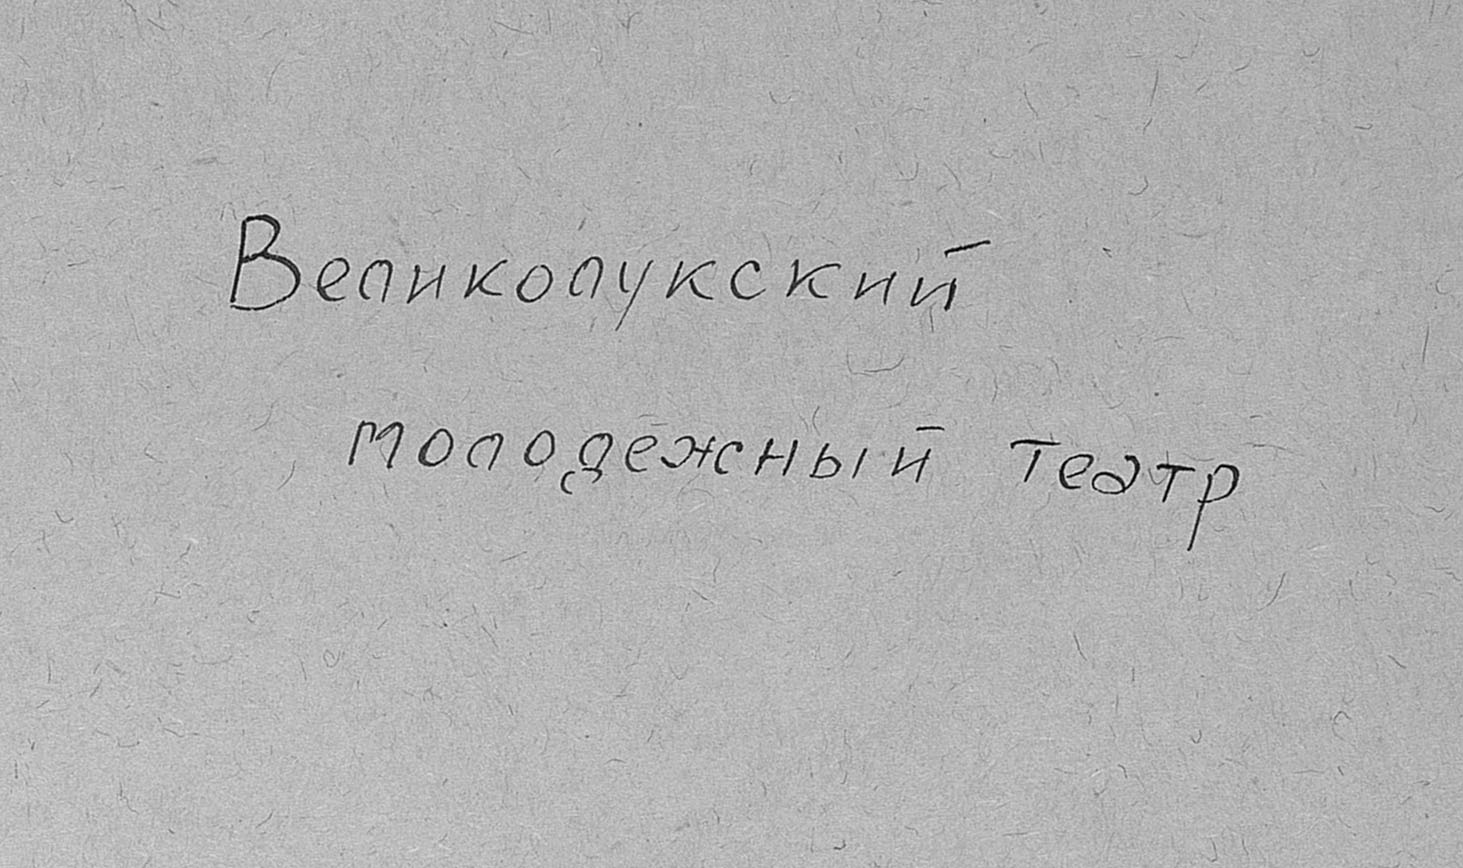 Великолукский
молодежный театр